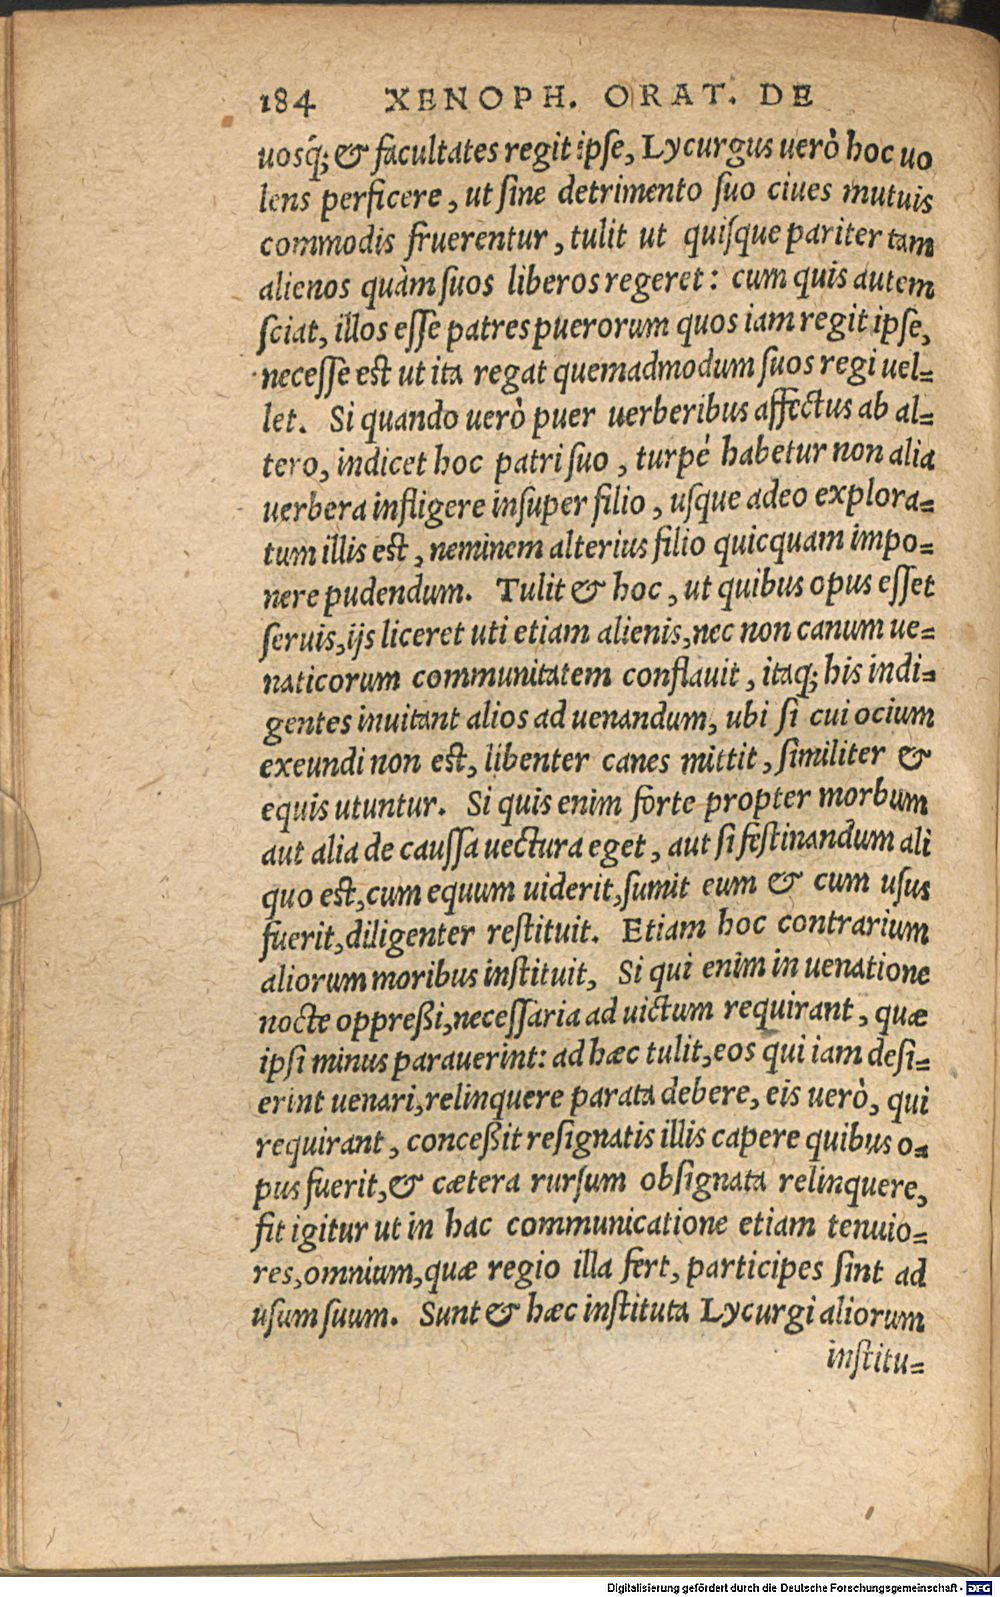 184 XENOPH. ORAT. DE
uosq́; & facultates regit ipse, Lycurgus uerò hoc uo
lens perficere, ut ſine detrimento ſuo ciues mutuis
commodis fruerentur, tulit ut quiſque pariter tam
alienos quàm ſuos liberos regeret: cum quis autem
ſciat, illos eſſe patres puerorum quos iam regit ipſe,
neceſſe est ut ita regat quemadmodum ſuos regi uel-
let. Si quando uerò puer uerberibus affectus ab al-
tero, indicet hoc patri ſuo, turpé habetur non alia
uerbera infligere inſuper filio, uſque adeo explora-
tum illis est, neminem alterius filio quicquam impo-
nere pudendum. Tulit & hoc, ut quibus opus eſſet
ſeruis, ijs liceret uti etiam alienis, nec non canum ue-
naticorum communitatem conflauit, itaq; his indi-
gentes inuitant alios ad uenandum, ubi ſi cui ocium
exeundi non est, libenter canes mittit, ſimiliter &
equis utuntur. Si quis enim forte propter morbum
aut alia de cauſſa uectura eget, aut ſi feſtinandum ali
quo est, cum equum uiderit, ſumit eum & cum uſus
fuerit, diligenter reſtituit. Etiam hoc contrarium
aliorum moribus inſtituit, Si qui enim in uenatione
nocte oppreßi, neceſſaria ad uictum requirant, quæ
ipſi minus parauerint: ad hæc tulit, eos qui iam deſi-
erint uenari, relinquere parata debere, eis uerò, qui
requirant, conceßit reſignatis illis capere quibus o-
pus fuerit, & cætera rurſum obſignata relinquere,
fit igitur ut in hac communicatione etiam tenuio-
res, omnium, quæ regio illa fert, participes ſint ad
uſum ſuum. Sunt & hæc inſtituta Lycurgi aliorum
inſtitu-
Digitalisierung gefördert durch die Deutsche Forschungsgemeinschaft - DFG